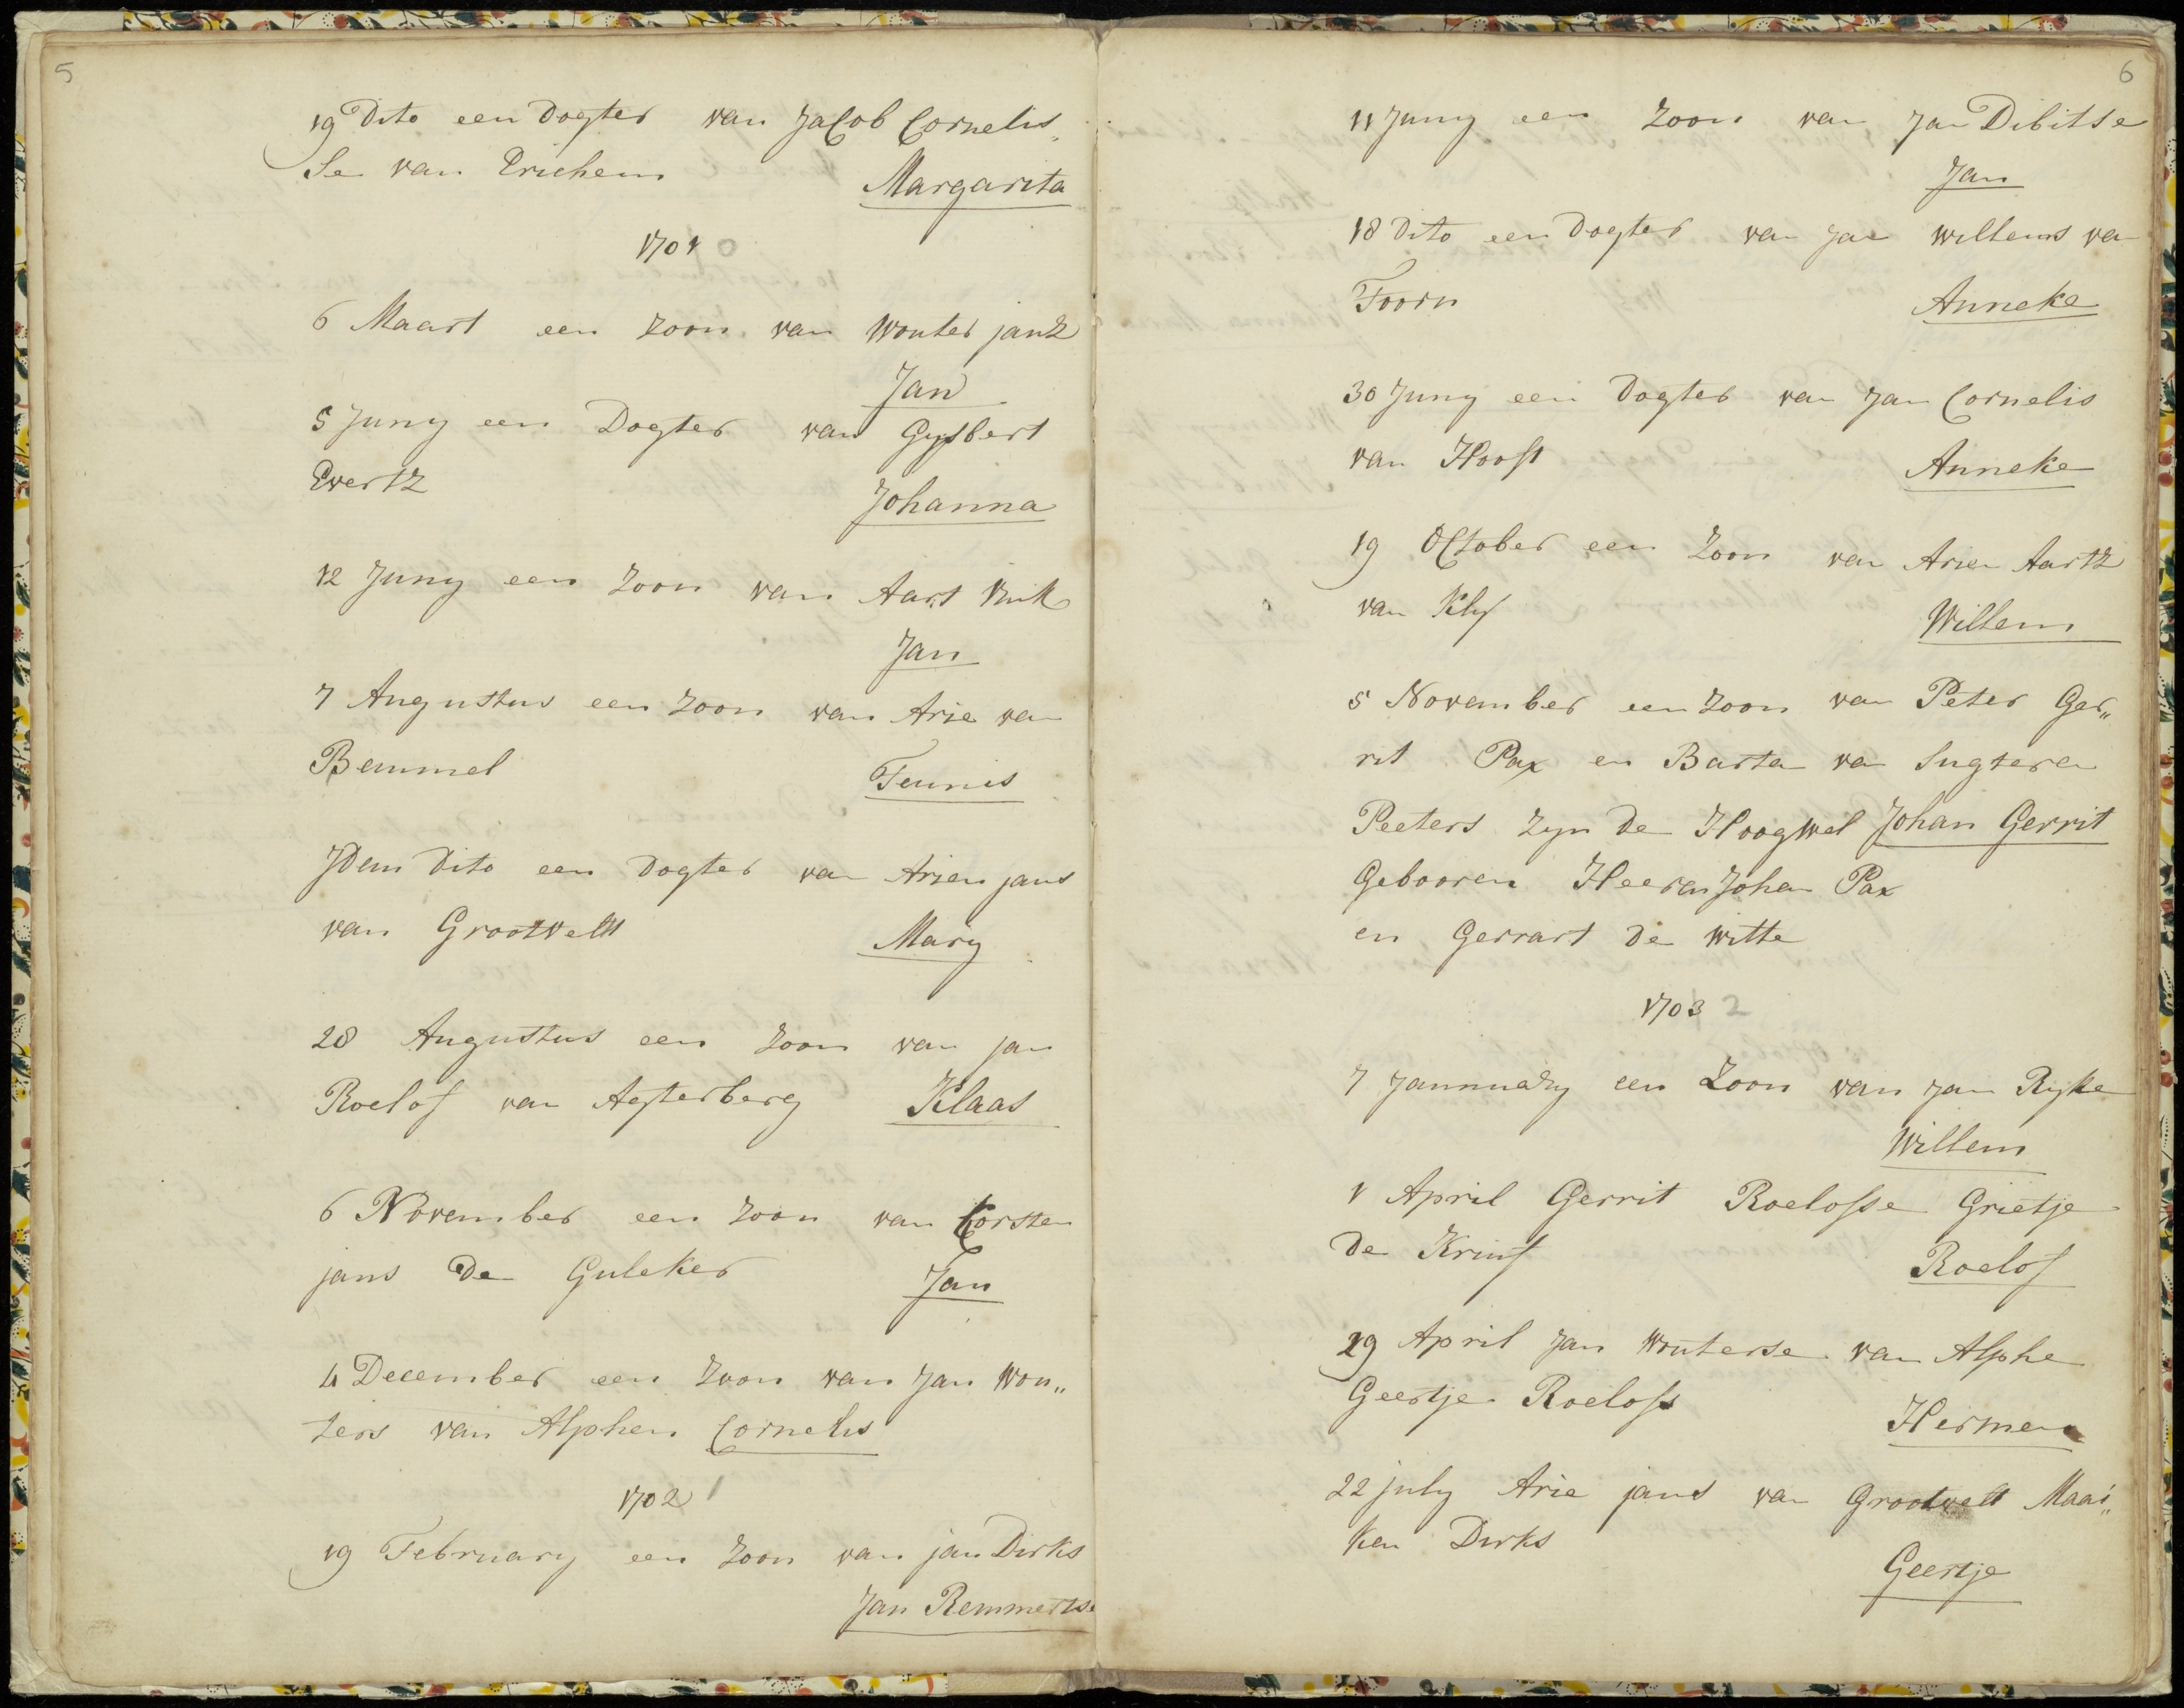 5
19 Dito een Dogter van JaCob Cornelis„
Se van Erichem Margarita
1701 0
6 Maart een zoon van Wouter janz
Jan
5 Juny een Dogter van Gysbert
Evertz Johanna
12 Juny een Zoon van Aart Vink
Jan
7 Augustus een Zoon van Arie van
Bemmel Teunis
JDem Dito een Dogter van Arien jans
van Grootveldt Mary
28 Augustus een Zoon van jan
Roelof van Agterberg Klaas
6 November een Zoon van Corsten
jans De Guleker Jan
4 December een Zoon van Jan Wou„
ters van Alphen Cornelis
1702 1
19 February een Zoon van jan Dirks
Jan Remmertse
6
11 Juny een Zoon van Jan Dibitse
Jan
18 Dito een Dogter van Jan Willems van
Toorn Anneke
30 Juny een Dogter van Jan Cornelis
van Hooft Anneke
19 OCtober een Zoon van Arien Aartz
van Klyf Willem
5 November een Zoon van Peter Ger„
rit Pax en Barta van Sugteren
Peeters Zyn De Hoogwel Johan Gerrit
Gebooren Heeren Johan Pax
en Gerrart De Witte
1703 2
7 Jannuary een Zoon van Jan Ryke
Willem
1 April Gerrit Roelofse Grietje
De Kruyf Roelof
29 April Jan Wouterse van Alphe
Geertje Roelofs Hermen
22 july Arie jans van Grootvelt Maai„
ken Dirks Geertje